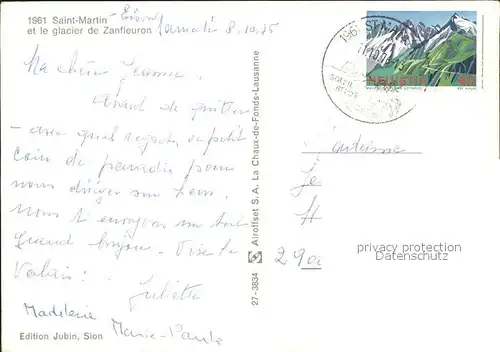 1961 Saint-Martin - Eison
et le glacier de Zanfleuron
Samedi 8.10.85
Ma chère Jeanne,
Avant de quitter
- avec quel regret - ce petit
coin de paradis pour
nous diriger sur
nous t'envoyons un tout
grand bonjour. Vive le
Valais!
Juliette
Madeleine
Marie-Paule
Edition Jubin, Sion
27-3834 Airoffset S.A. La Chaux-de-Fonds-Lausanne
1961 ST-MARTIN
SOLEIL
REPOS
HELVETIA 40
Je
A
290
privacy protection
Datenschutz